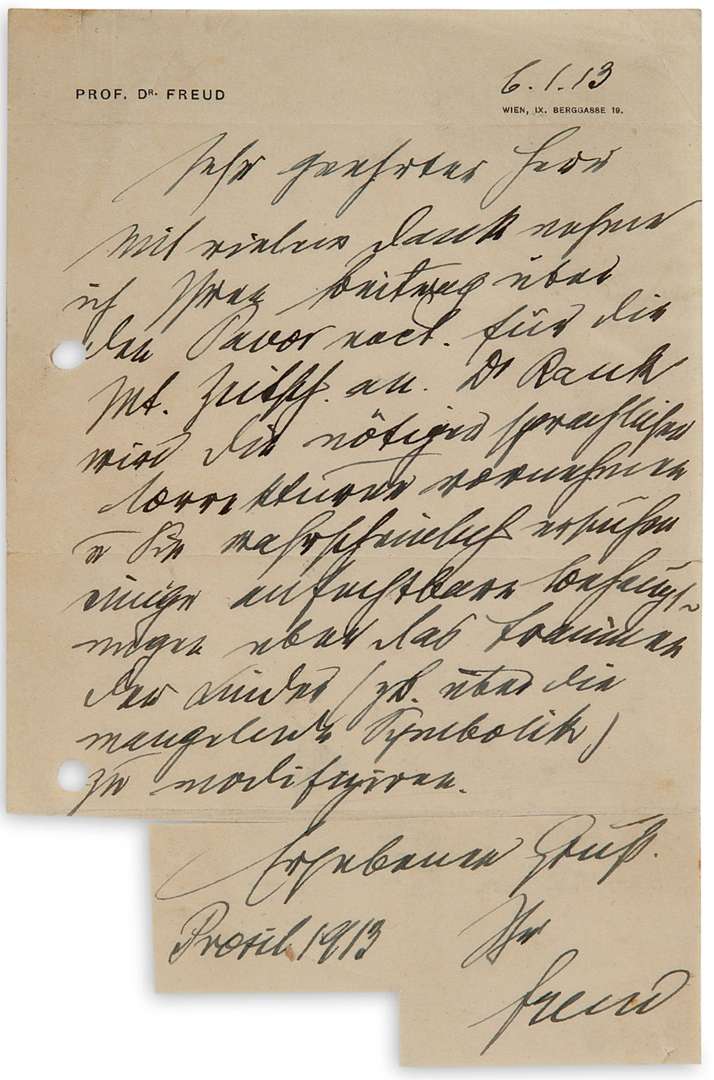 PROF. DR. FREUD
6.1.13
WIEN, IX. BERGGASSE 19.
Sehr geehrter Herr
Mit vielem Dank nehme
ich Ihren Beitrag über
den Pavor noct. für die
Int. Zeitsch. an. Dr Rank
wird die nötigen sprachlichen
Correkturen vornehmen
u Sie wahrscheinlich ersuchen
einige anfechtbare Behaupt-
ungen über das Träumen
der Kinder (zB. über die
mangelnde Symbolik)
zu modifiziren.
Ergebenen Gruß.
Ihr
Prosit 1913
Freud